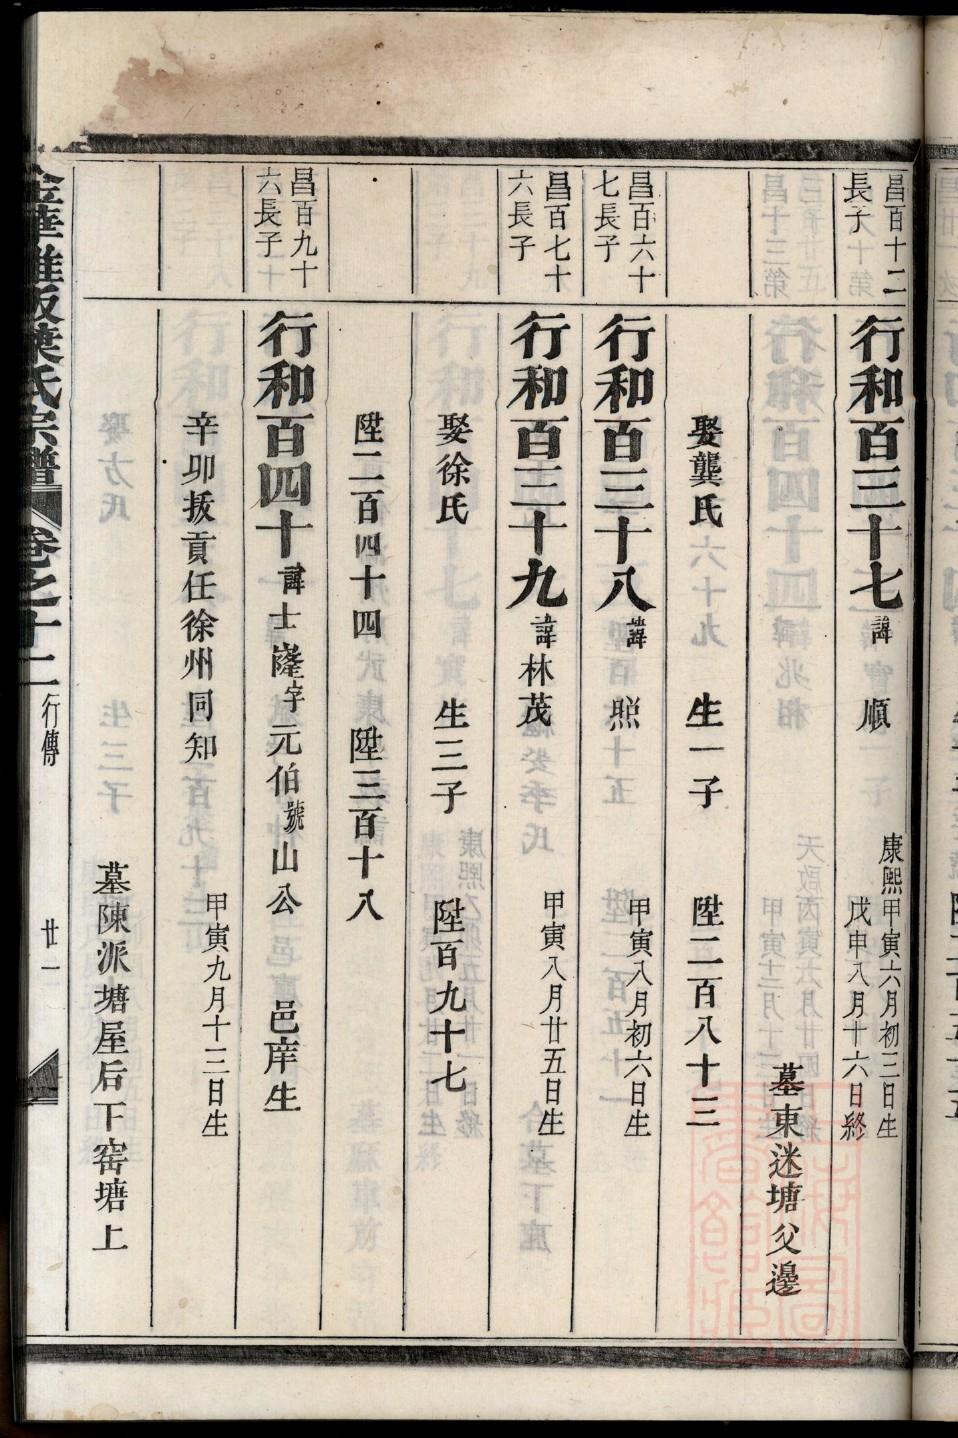 昌百十二
長子
行和百三十七 諱 順 康熙甲寅六月初三日生
戊申八月十六日終
墓東迷塘父邊
娶龔氏 生一子 陞二百八十三
昌百六十
七長子
行和百三十八 諱 熙 甲寅八月初六日生
昌百七十
六長子
行和百三十九 諱林茂 甲寅八月廿五日生
娶徐氏 生三子 陞百九十七
陞二百四十四 陞三百十八
昌百九十
六長子
行和百四十 諱士嶐字元伯號山公 邑庠生
辛卯拔貢任徐州同知 甲寅九月十三日生
墓陳派塘屋后下窑塘上
金華雅畈葉氏宗譜 卷之十二 行傳 廿一